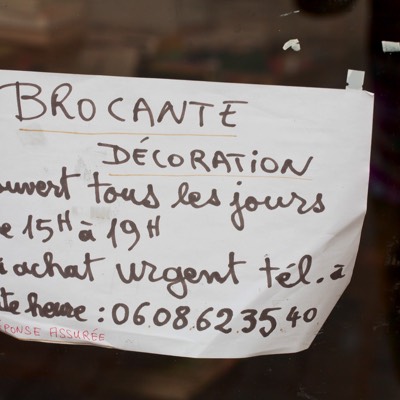 BROCANTE
DÉCORATION
ouvert tous les jours
e 15H à 19H
i achat urgent tél. à
te heure : 06.08.62.35.40
ÉPONSE ASSURÉE